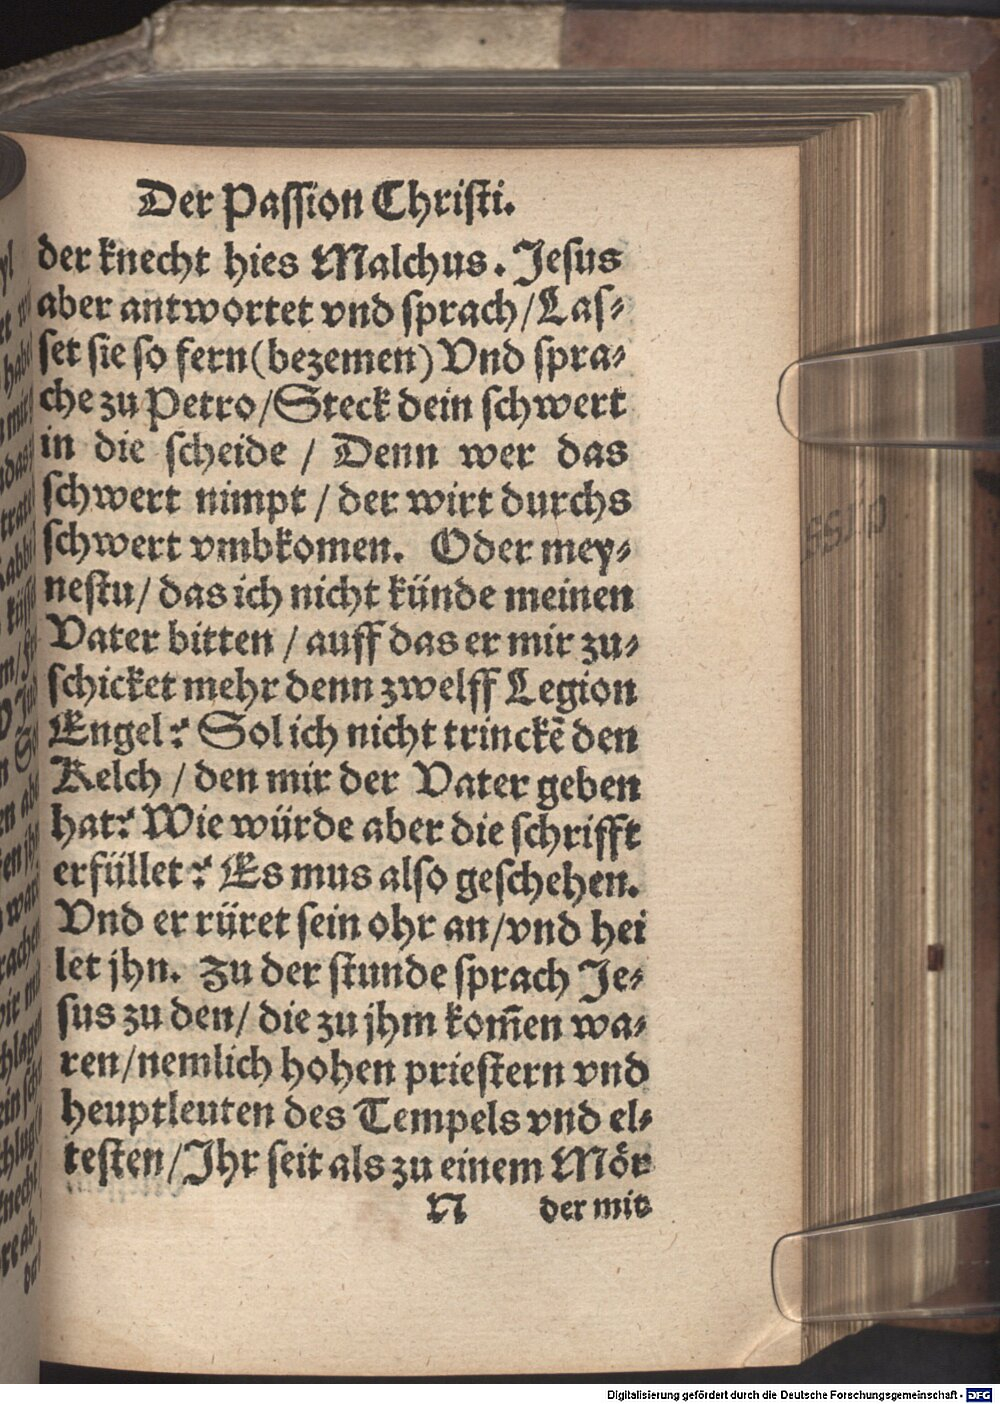 Der Passion Christi.
der knecht hies Malchus. Jesus
aber antwortet vnd sprach/Las⸗
set sie so fern(bezemen) Vnd spra⸗
che zu Petro/Steck dein schwert
in die scheide / Denn wer das
schwert nimpt / der wirt durchs
schwert vmbkomen. Oder mey⸗
nestu/ das ich nicht künde meinen
Vater bitten / auff das er mir zu⸗
schicket mehr denn zwelff Legion
Engel? Sol ich nicht trinckē den
Kelch / den mir der Vater geben
hat? Wie würde aber die schrifft
erfüllet? Es mus also geschehen.
Vnd er rüret sein ohr an/vnd hei
let jhn. Zu der stunde sprach Je⸗
sus zu den/ die zu jhm kom̄en wa⸗
ren/nemlich hohen priestern vnd
heuptleuten des Tempels vnd el⸗
testen/Jhr seit als zu einem Mör
N der mit
Digitalisierung gefördert durch die Deutsche Forschungsgemeinschaft - DFG